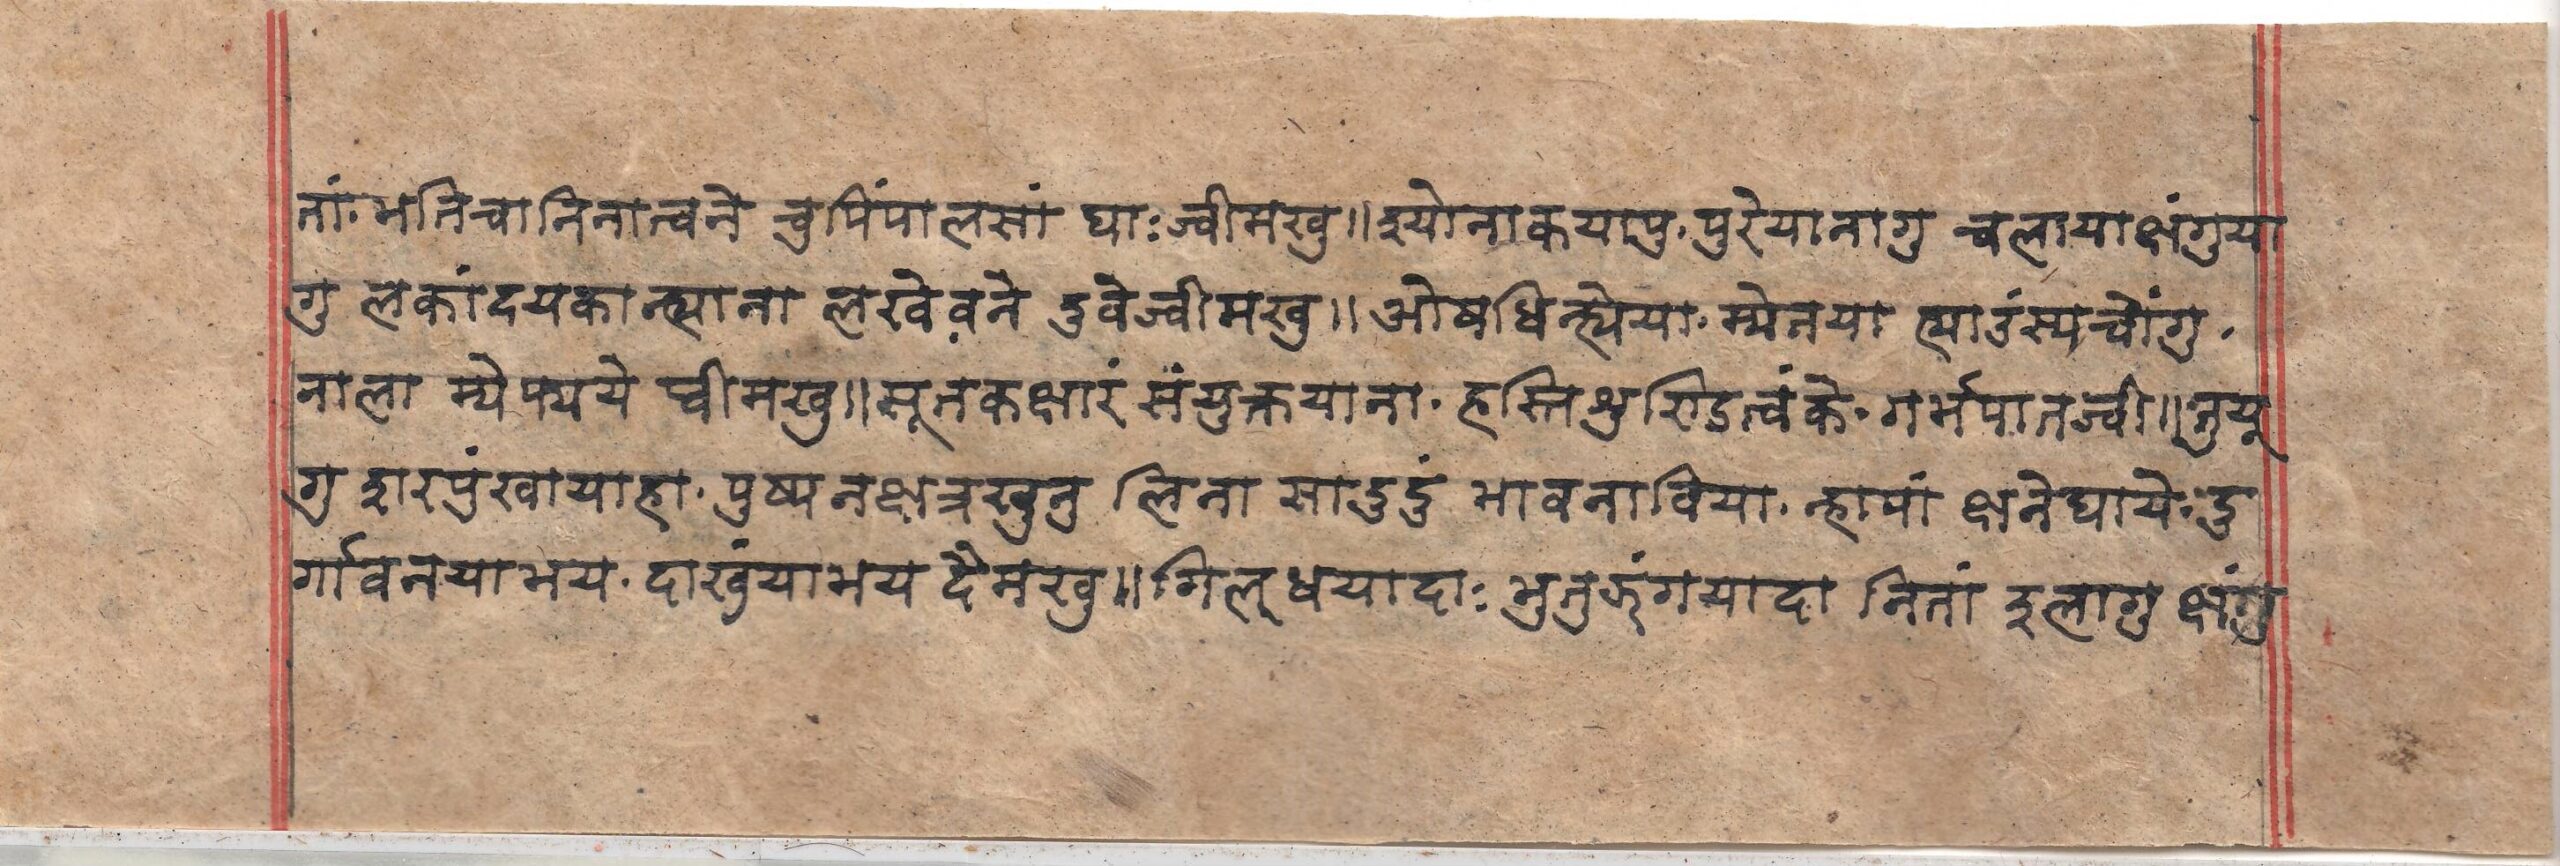 तां॰ भतिचानिनात्वने चुपिंपालसां घाः ज्वीमखु॥ इयोनाकयापु॰ पुरेयानागु च्वलायाक्षंगुया
गु लकांदयकान्ह्याना लखेवने दुवेज्वीमखु॥ ओषधिन्ह्येया॰ म्येतया त्याउंस्यच्वोंगु॰
नाला म्येफ्यये च्वीमखु॥ सूतकक्षारं संयुक्तयाना॰ हस्तिश्रुण्डित्वंके॰ गर्भपातज्वी॥ तुयू
गु शरपुंखायाहा॰ पुष्यनक्षत्रखुनु लिना सादुदुं भावनाविया॰ न्हापां क्षनेघाये॰ दु
र्गावनयाभय॰ दाखुंयाभय दैमखु॥ गिलूधयादाः भुतुऊंगयादा नितां इलागु क्षंगु